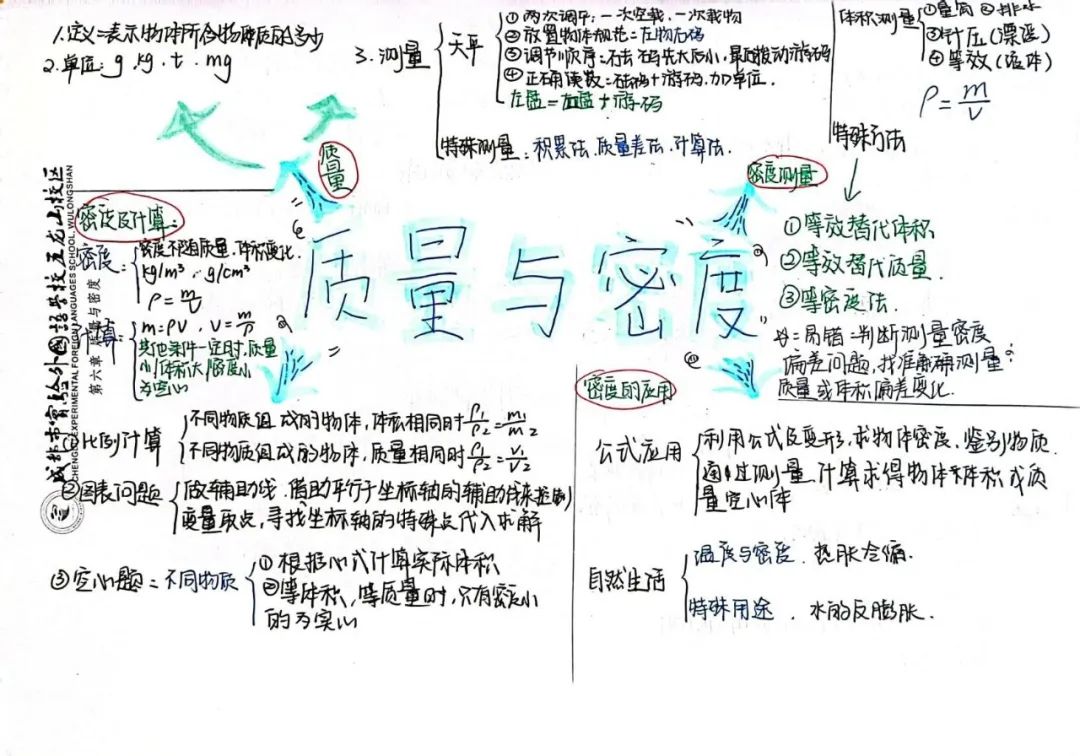 1.定义=表示物体所含物体质的多少
2.单位: g . kg . t . mg
3.测量
天平
①两次调平: 一次空载, 一次载物
②放置物体规范=左物右码
③调节顺序:=砝码先大后小,最后拨动游码
④正确读数:=砝码+游码.加单位.
左盘=右盘+游码
特殊测量: 积累法.质量差法.计算法.
体积测量
①量筒 ②排水
③针压(漂浮)
④等效(液体)
ρ=m/V
特殊方法
①等效替代体积
②等效替代质量.
③等密度法.
易错=判断测量密度
偏差问题,找准测量
质量或体积偏差变化.
质量
密度测量
质量与密度
密度及计算:
密度:
密度不随质量.体积变化.
kg/m³ . g/cm³
ρ=m/V
计算:
m=ρV . V=m/ρ
其他条件一定时.质量
小/体积大/密度小
为空心
成都市实验外国语学校五龙山校区
CHENGDU EXPERIMENTAL FOREIGN LANGUAGES SCHOOL, WULONGSHAN
第六章 质量与密度
①比例计算
不同物质组成的物体,体积相同时ρ1/ρ2=m1/m2
不同物质组成的物体,质量相同时ρ1/ρ2=V1/V2
②图表问题
做辅助线.借助平行于坐标轴的辅助线来控制
变量取点,寻找坐标轴的特殊点代入求解
③空心题=不同物质
①根据公式计算实际体积
②等体积,等质量时,只有密度小
的为实心
密度的应用
公式应用
利用公式及变形,求物体密度.鉴别物质.
通过测量.计算求得物体体积或质
量空心体
自然生活
温度与密度.热胀冷缩.
特殊用途.水的反膨胀.